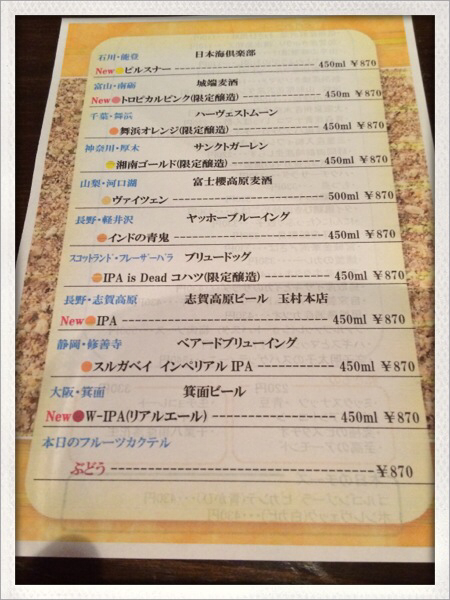 石川・能登 日本海倶楽部
New ピルスナー 450ml ¥870
富山・南砺 城端麦酒
New トロピカルピンク(限定醸造) 450m ¥870
千葉・舞浜 ハーヴェストムーン
舞浜オレンジ(限定醸造) 450ml ¥870
神奈川・厚木 サンクトガーレン
湘南ゴールド(限定醸造) 450ml ¥870
山梨・河口湖 富士櫻高原麦酒
ヴァイツェン 500ml ¥870
長野・軽井沢 ヤッホーブルーイング
インドの青鬼 450ml ¥870
スコットランド・フレーザーバラ ブリュードッグ
IPA is Dead コハツ(限定醸造) 450ml ¥870
長野・志賀高原 志賀高原ビール 玉村本店
New IPA 450ml ¥870
静岡・修善寺 ベアードブリューイング
スルガベイ インペリアル IPA 450ml ¥870
大阪・箕面 箕面ビール
New W-IPA(リアルエール) 450ml ¥870
本日のフルーツカクテル
ぶどう ¥870